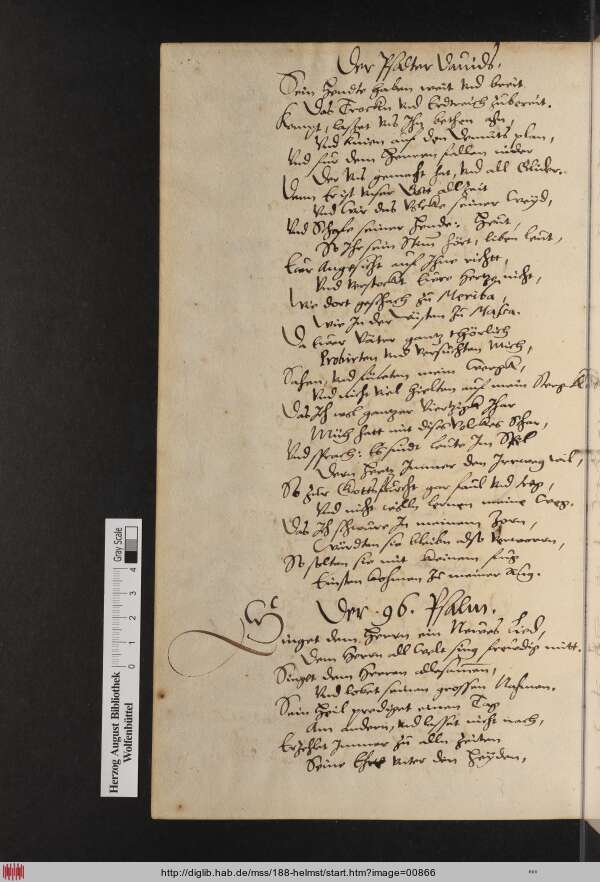 Der Psalter Dauids.
Sein Hendte haben weit vnd breit
Das Trockn vnd Erdtreich zubereit.
Kompt, lasset vns Ihn bethen ahn,
Vnd knien auf den Demuts plan,
Vnd für dem Herren fallen nider
Der vns gemacht hat, vnd all Glider.
Denn Er ist vnser Gott allzeit
Vnd wir das Volcke seiner Weyd,
Vnd Schafe seiner Hende: Heut,
So Ihr sein Stim hört, liben leut,
Eur Angesicht auf Ihne richtt,
Vnd verstockt Eure Hertzen nicht,
Wie dort geschach zu Meriba,
Wie In der Wüsten zu Massa.
Da Eurer Väter gantz thörlich
Probirten vnd versuchten Mich,
Sahen, vnd fületen mein Werck,
Vnd nicht viel hielten auf mein Sterck
Das Ich wol gantzer Viertzig Jhar
Müh hatt mit dises Volckes Schar,
Vnd sprach: Es sindt leute Im Spil
Dern Hertz Immer den Irrweg wil,
So zur Gottsfurcht gar faul vnd treg,
Vnd nicht wolln lernen meine Weg.
Das Ich schwure In meinem Zorn,
Würdten sie bleibn also verworrn,
So solten sie mit keinem fug
Einsten kohmen zu meiner Rug.
Der .96. Psalm.
Singet dem Herrn ein Neues Lied,
Dem Herrn all Welt sing freudig mitt.
Singt dem Herren allesammen,
Vnd lobet seinen grossen Nahmen.
Sein Heil prediget einen Tag
Am andern, vnd lasset nicht nach,
Erzehlet Immer zu alln Zeiten
Seine Ehre vnter den Heyden,
Herzog August Bibliothek
Wolfenbüttel
0 1 2 3 4
Gray Scale
http://diglib.hab.de/mss/188-helmst/start.htm?image=00866